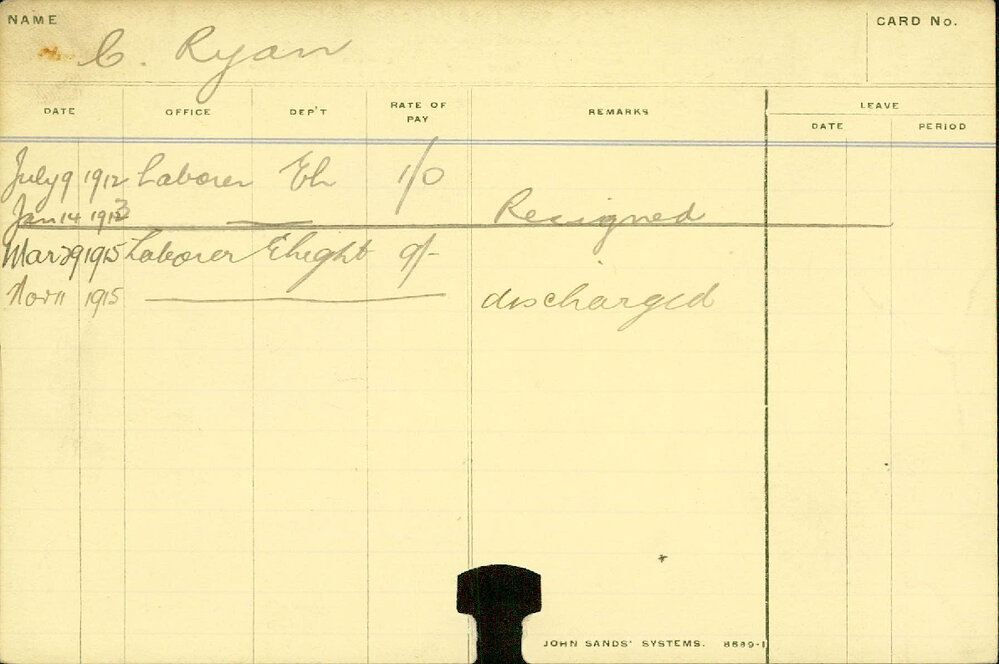 NAME
C. Ryan
CARD No.
DATE OFFICE DEP'T RATE OF PAY REMARKS LEAVE
DATE PERIOD
July 9 1912 Laborer 1/0
Jan 14 1913 Resigned
Mar 29 1915 Laborer Elight 9/-
Nov 11 1915 discharged
JOHN SANDS' SYSTEMS. 8689-1